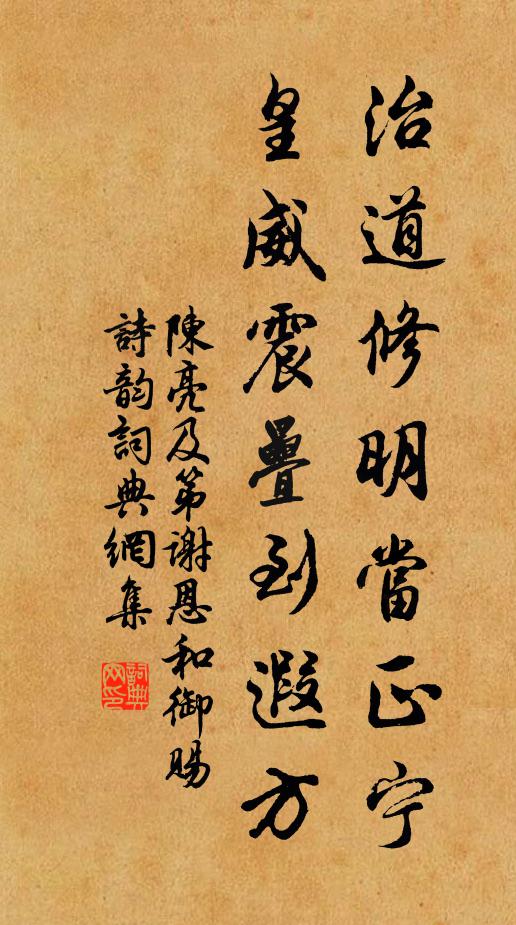 治道修明當正宁
皇威震疊到遐方
陳亮及第謝恩和御賜
詩韵詞典網集
詞典网印